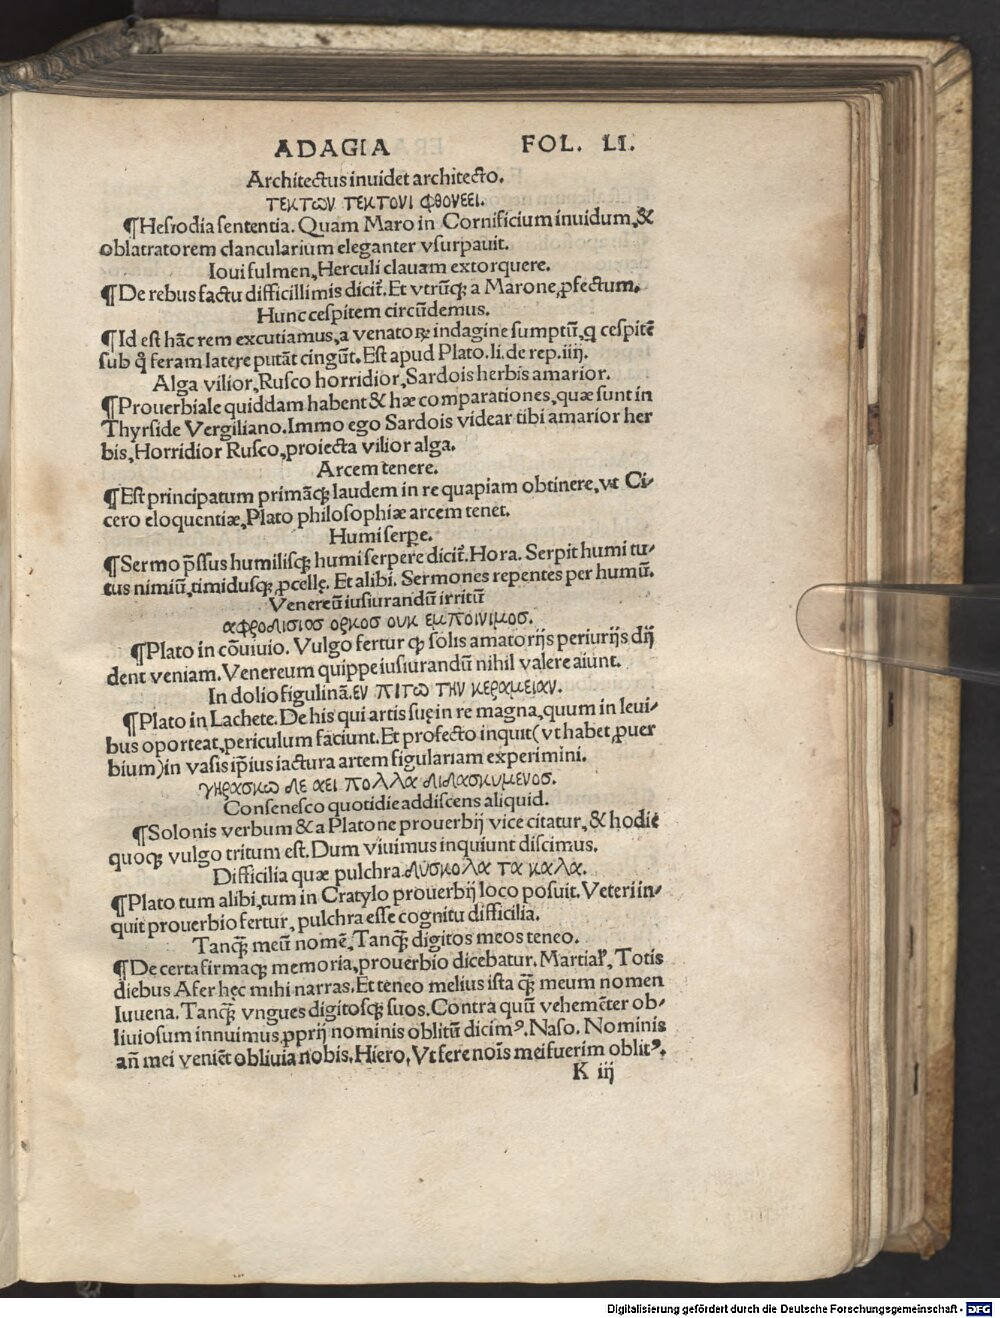 ADAGIA FOL. LI.
Architectus inuidet architecto.
τεκτων τεκτονι φθονεει.
¶Hesiodia sententia. Quam Maro in Cornificium inuidum,&
oblatratorem clancularium eleganter vsurpauit.
Ioui fulmen, Herculi clauam extorquere.
¶De rebus factu difficillimis dicit̃. Et vtrũq; a Marone ꝓfectum.
Hunc cespitem circũdemus.
¶Id est hãc rem excutiamus, a venatoꝝ indagine sumptũ, q cespitẽ
sub q̃ feram latere putãt cingũt. Est apud Plato. li. de rep. iiij.
Alga vilior, Rusco horridior, Sardois herbis amarior.
¶Prouerbiale quiddam habent & hæ comparationes, quæ sunt in
Thyrside Vergiliano. Immo ego Sardois videar tibi amarior her
bis, Horridior Rusco, proiecta vilior alga.
Arcem tenere.
¶Est principatum primãq; laudem in re quapiam obtinere, vt Ci-
cero eloquentiæ, Plato philosophiæ arcem tenet.
Humi serpe.
¶Sermo p̃ssus humilisq; humi serpere dicit̃. Hora. Serpit humi tu-
tus nimiũ, timidusq; ꝓcellę. Et alibi. Sermones repentes per humũ.
Venereũ iusiurandũ irritũ
αφροδισιος ορκος ουκ εμποινιμος.
¶Plato in cõuiuio. Vulgo fertur ꝙ solis amatorijs periurijs dij
dent veniam. Venereum quippe iusiurandũ nihil valere aiunt.
In dolio figulinã. εν πιτω την κεραμειαν.
¶Plato in Lachete. De his qui artis suę in re magna, quum in leui-
bus oporteat, periculum faciunt. Et profecto inquit (vt habet ꝓuer
bium) in vasis ip̃ius iactura artem figulariam experimini.
γηρασκω δε αει πολλα διδασκυμενος.
Consenesco quotidie addiscens aliquid.
¶Solonis verbum & a Platone prouerbij vice citatur, & hodie
quoq; vulgo tritum est. Dum viuimus inquiunt discimus.
Difficilia quæ pulchra. δυσκολα τα καλα.
¶Plato tum alibi, tum in Cratylo prouerbij loco posuit. Veteri in-
quit prouerbio fertur, pulchra esse cognitu difficilia.
Tanq̃ meũ nomẽ, Tanq̃ digitos meos teneo.
¶De certa firmaq; memoria, prouerbio dicebatur. Martial̕, Totis
diebus Afer hęc mihi narras. Et teneo melius ista q̃ meum nomen
Iuuena. Tanq̃ vngues digitosq; suos. Contra quũ vehemẽter ob-
liuiosum innuimus, ꝓprij nominis oblitũ dicimꝰ. Naso. Nominis
añ mei veniẽt obliuia nobis. Hiero, Vt fere nõis mei fuerim oblitꝰ.
K iij
Digitalisierung gefördert durch die Deutsche Forschungsgemeinschaft - DFG